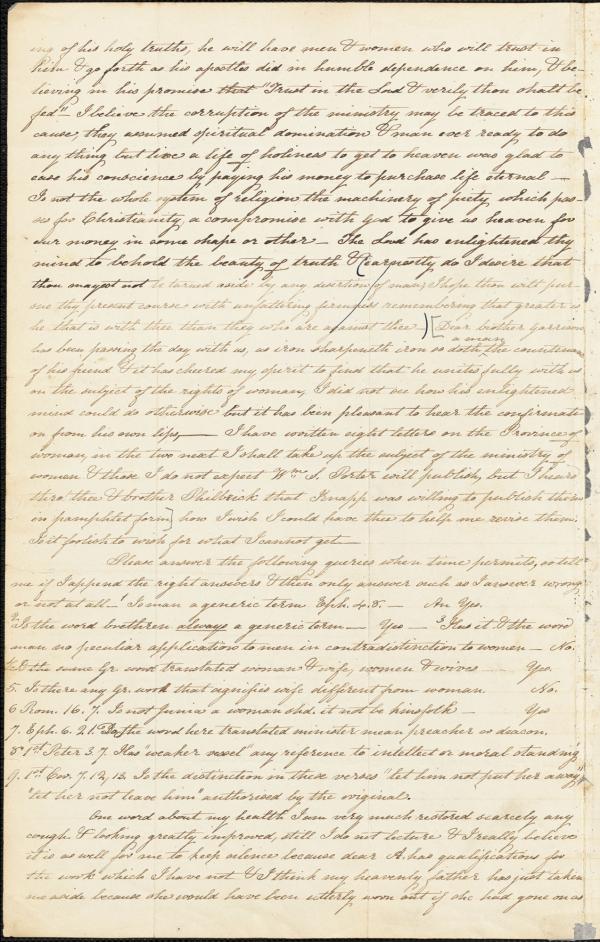 ing of his holy truths, he will have men & women who will trust in
him & go forth as his apostles did in humble dependence on him, & be-
lieving in his promise that "Trust in the Lord & verily thou shalt be
fed" - I believe the corruption of the ministry may be traced to this
cause, they assumed spiritual domination & man ever ready to do
any thing but live a life of holiness to get to heaven was glad to
ease his conscience by paying his money to purchase life eternal -
Is not the whole system of religion the machinery of piety, which pas-
ses for Christianity, a compromise with God to give us heaven for
our money in some shape or other - The Lord has enlightened thy
mind to behold the beauty of truth & earnestly do I desire that
thou mayest not be turned aside by any desertion of man; I hope thou wilt pur-
sue thy present course with unfaltering firmness remembering that greater is
he that is with thee than they who are against thee.)[Dear brother Garrison
a man
has been passing the day with us, as iron sharpeneth iron so doth the countenance
of his friend & it has cheered my spirit to find that he unites fully with us
on the subject of the rights of woman, I did not see how his enlightened
mind could do otherwise but it has been pleasant to hear the confirmati-
on from his own lips, - I have written eight letters on the Province of
woman, in the two next I shall take up the subject of the ministry of
women & those I do not expect Wm. S. Porter will publish, but I heard
thro' thee & brother Philbrick that Knapp was willing to publish them
in pamphlet form] how I wish I could have thee to help me revise them.
Is it foolish to wish for what I cannot get -
Please answer the following queries when time permits, so tell
me if I append the right answers & then only answer such as I answer wrong
or not at all - 1 Is man a generic term Eph. 4.8. - An Yes.
2 Is the word brethren always a generic term - Yes - 3 Has it & the word
man no peculiar application to men in contradistinction to women - No.
4. Is the same Gr. word translated woman & wife, women & wives - Yes.
5. Is there any Gr. work that signifies wife different from woman. No.
6 Rom. 16. 7. Is not Junia a woman shd. it not be kinsfolk - Yes
7. Eph. 6. 21. Does the word here translated minister mean preacher or deacon.
8 1st Peter 3. 7. Has "weaker vessel" any reference to intellect or moral standing
9. 1st Cor. 7. 12, 13. Is the distinction in these verses "let him not put her away"
"let her not leave him" authorised by the original.
One word about my health I am very much restored scarcely any
cough & looking greatly improved, still I do not lecture & I really believe
it is as well for me to keep silence because dear A. has qualifications for
the work which I have not & I think my heavenly father has just taken
me aside because she would have been utterly worn out if she had gone on as